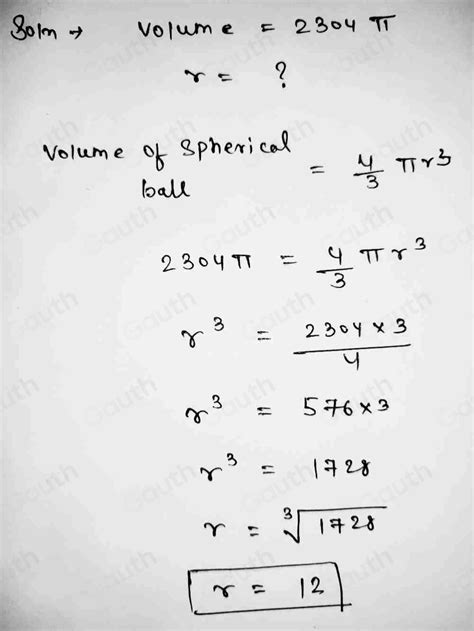 Soln → Volume = 2304 π
r = ?
Volume of Spherical ball = 4/3 πr³
2304π = 4/3 πr³
r³ = 2304 × 3 / 4
r³ = 576 × 3
r³ = 1728
r = ³√1728
r = 12
Gauth